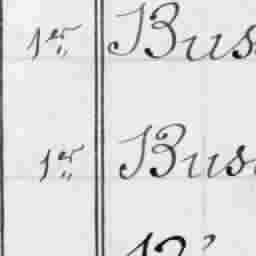 1er Bus
1er Bus